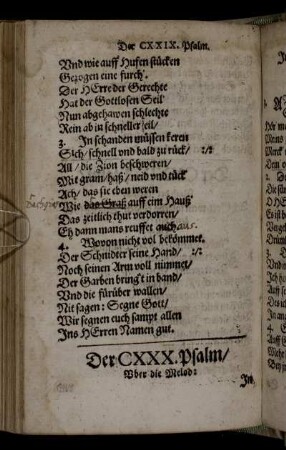 Der CXXIX. Psalm.
Vnd wie auff Hufen stücken
Gezogen eine furch'.
Der HErre der Gerechte
Hat der Gottlosen Seil'
Nun abgehawen schlechte
Rein ab in schneller zeil/
3. In schanden müssen keren
Sich/ schnell vnd bald zu rück/ :/:
All/ die Zion beschweren/
Mit gram/ haß/ neid vnd tück
Ach/ das sie eben weren
Wie das Graß auff eim Hauß'
Das zeitlich thut verdorren/
Eh dann mans reuffet auch aus.
4. Wovon nicht vol bekömmet.
Der Schnidter seine Hand/ :/:
Noch seinen Arm voll nimmet/
Der Garben bring't in band/
Vnd die fürüber wallen/
Nit sagen: Segne Gott/
Wir segnen euch sampt allen
Ins HErren Namen gut.
Der CXXX. Psalm/
Vber die Melod:
In